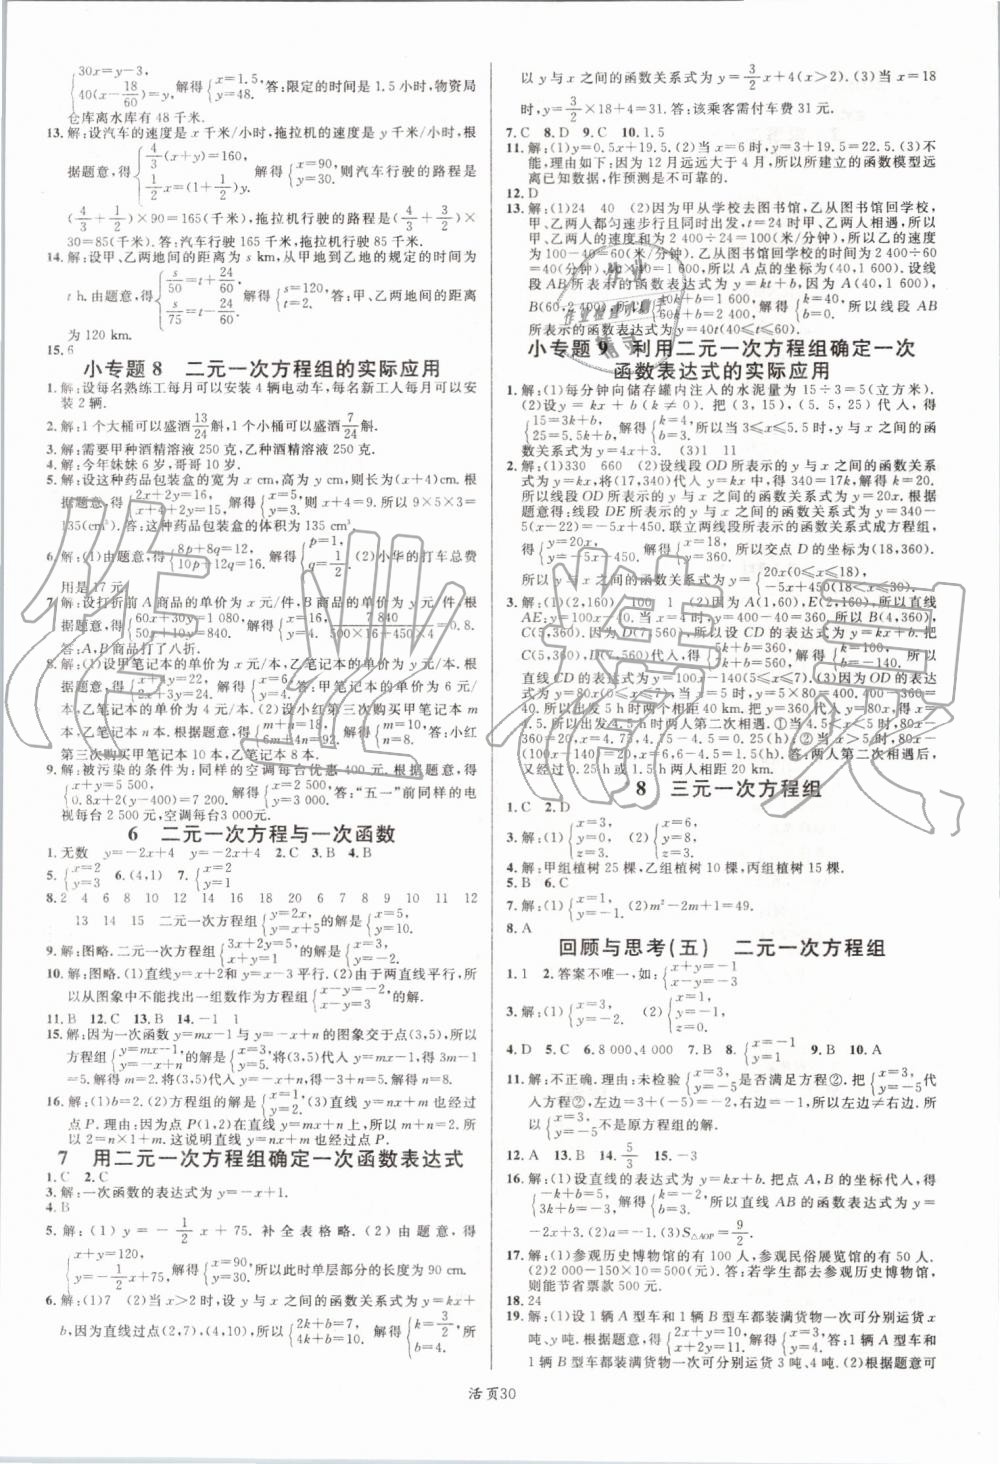 {30x=y-3, 40(x-18/60)=y. 解得{x=1.5, y=48. 答:限定的时间是 1.5 小时,物资局
仓库离水库有 48 千米.
13.解:设汽车的速度是 x 千米/小时,拖拉机的速度是 y 千米/小时,根
据题意,得{4/3(x+y)=160, 1/2x=(1/2+1)y. 解得{x=90, y=30. 则汽车行驶的路程是
(4/3+1/2)×90=165(千米),拖拉机行驶的路程是(4/3+3/2)×
30=85(千米).答:汽车行驶 165 千米,拖拉机行驶 85 千米.
14.解:设甲、乙两地间的距离为 s km,从甲地到乙地的规定的时间为
t h.由题意,得{s/50=t+24/60, s/75=t-24/60. 解得{s=120, t=2. 答:甲、乙两地间的距离
为 120 km.
15.6
小专题 8 二元一次方程组的实际应用
1.解:设每名熟练工每月可以安装 4 辆电动车,每名新工人每月可以安
装 2 辆.
2.解:1 个大桶可以盛酒13/24斛,1 个小桶可以盛酒7/24斛.
3.解:需要甲种酒精溶液 250 克,乙种酒精溶液 250 克.
4.解:今年妹妹 6 岁,哥哥 10 岁.
5.解:设这种药品包装盒的宽为 x cm,高为 y cm,则长为(x+4)cm.根
据题意,得{2x+2y=16, x+4+2y=15. 解得{x=5, y=3. 则x+4=9.所以 9×5×3=
135(cm³).答:这种药品包装盒的体积为 135 cm³.
6.解:(1)由题意,得{8p+8q=16, 10p+12q=16. 解得{p=1, q=1/2. (2)小华的打车总费
用是 17 元.
7.解:设打折前 A 商品的单价为 x 元/件,B 商品的单价为 y 元/件,根
据题意,得{60x+30y=1 080, 50x+10y=840. 解得{x=16, y=4. 7 840/(500×16+450×4)=0.8.
答:A、B商品打了八折.
8.解:(1)设甲笔记本的单价为 x 元/本,乙笔记本的单价为 y 元/本.根
本,乙笔记本的单价为 4 元/本.(2)设小红第三次购买甲笔记本 m
第三次购买甲笔记本 10 本,乙笔记本 8 本.
9.解:被污染的条件为:同样的空调每台优惠 400 元.根据题意,得
{x+y=5 500, 0.8x+2(y-400)=7 200. 解得{x=2 500, y=3 000. 答:“五一”前同样的电
视每台 2 500 元,空调每台3 000元.
6 二元一次方程与一次函数
1.无数 y=-2x+4 y=-2x+4 2.C 3.B 4.B
5.{x=2 y=3 6.(4,1) 7.{x=2 y=1
8.2 4 6 8 10 12 14 16 18 20 6 7 8 9 10 11 12
13 14 15 二元一次方程组{y=2x, y=x+5的解是{x=5, y=10.
9.解:图略.二元一次方程组{3x+2y=5, 2x-y=1的解为{x=1, y=1.
10.解:图略.(1)直线y=x+2和y=x-3平行.(2)由于两直线平行,所
以从图象中不能找出一组数作为方程组{x-y=-2, x-y=3的解.
11.B 12.C 13.B 14.-1 1
15.解:因为一次函数 y=mx-1 与 y=-x+n 的图象交于点(3,5),所以
方程组{y=mx-1, y=-x+n的解为{x=3, y=5. 将(3,5)代入 y=mx-1,得 3m-1
=5.解得 m=2.将(3,5)代入 y=-x+n,得-3+n=5.解得 n=8.
16.解:(1)b=2.(2)方程组的解为{x=1, y=2. (3)直线 y=nx+m 也经过
点 P.理由:因为点 P(1,2)在直线 y=mx+n 上,所以 m+n=2,所以
2=n×1+m.这说明直线 y=nx+m 也经过点 P.
7 用二元一次方程组确定一次函数表达式
1.C 2.C
3.解:一次函数的表达式为 y=-x+1.
4.B
5.解:(1)y=-1/2x+75.补全表格略.(2)由题意,得
{x+y=120, y=-1/2x+75. 解得{x=90, y=30. 所以此时单层部分的长度为 90 cm.
6.解:(1)7 (2)当 x>2 时,设 y 与 x 之间的函数关系式为 y=kx+
b,因为直线过点(2,7),(4,10),所以{2k+b=7, 4k+b=10. 解得{k=3/2, b=4. 所
以 y 与 x 之间的函数关系式为 y=3/2x+4(x>2).(3)当 x=18
时,y=3/2×18+4=31.答:该乘客需付车费 31 元.
7.C 8.D 9.C 10.1.5
11.解:(1)y=0.5x+19.5.(2)当 x=6时,y=3+19.5=22.5.(3)不
能,理由如下:因为 12 月远远大于 4 月,所以所建立的函数模型远
离已知数据,作预测是不可靠的.
12.D
13.解:(1)24 40 (2)因为甲从学校去图书馆,乙从图书馆回学校,
甲、乙两人都匀速步行且同时出发,t=24 时,两人相遇,所以
甲、乙两人的速度和为 2 400÷24=100(米/分钟),所以乙的速度为
100-40=60(米/分钟).乙从图书馆回学校的时间为 2 400÷60
=40(分钟),40×40=1 600,所以 A 点的坐标为(40,1 600).设线
B(60,2 400),所以{40k+b=1 600, 60k+b=2 400. 解得{k=40, b=0. 所以线段 AB
所表示的函数表达式为 y=40t(40≤t≤60).
小专题 9 利用二元一次方程组确定一次
函数表达式的实际应用
1.解:(1)每分钟向储存罐内注入的水泥量为 15÷3=5(立方米).
(2)设 y=kx+b(k≠0).把(3,15),(5.5,25)代入,得
{15=3k+b, 25=5.5k+b. 解得{k=4, b=3. 所以当 3≤x≤5.5 时,y 与 x 之间的函
数关系式为 y=4x+3. (3)1 11
2.解:(1)330 660 (2)设线段 OD 所表示的 y 与 x 之间的函数关系
式为 y=kx.将(17,340)代入 y=kx 中,得 340=17k.解得 k=20.
所以线段 OD 所表示的 y 与 x 之间的函数关系式为 y=20x.根据
题意得:线段 DE 所表示的 y 与 x 之间的函数关系式为 y=340-
5(x-22)=-5x+450.联立两线段所表示的函数关系式成方程组,
得{y=20x, y=-5x+450. 解得{x=18, y=360. 所以交点 D 的坐标为(18,360).
所以 y 与 x 之间的函数关系式为 y={20x(0≤x≤18), -5x+450(18<x≤30).
C(5,360),D(7,560)代入,得{5k+b=360, 7k+b=560. 解得{k=100, b=-140. 所以
又经过 0.25 h 或 1.5 h 两人相距 20 km.
8 三元一次方程组
1.C 2.D
3.解:(1){x=3, y=0, z=3. (2){x=6, y=8, z=3.
4.解:甲组植树 25 棵,乙组植树 10 棵,丙组植树 15 棵.
5.B 6.C
7.解:(1){x=1, y=1. (2)m²-2m+1=49.
8.A
回顾与思考(五) 二元一次方程组
1.1 2.答案不唯一,如:{x+y=-1 x-y=-3
3.解:(1){x=3, y=1. (2){x=1, y=-1, z=0.
4.D 5.C 6.8 000,4 000 7.B 8.{x=-1 y=1 9.B 10.A
11.解:不正确.理由:未检验{x=3, y=-5是否满足方程②.把{x=3, y=-5代
入方程②,左边=3+(-5)=-2,右边=2.所以左边≠右边.所以
{x=3, y=-5不是原方程组的解.
12.A 13.B 14.5/3 15.-3
16.解:(1)设直线的表达式为 y=kx+b.把点 A、点 B 的坐标代入,得
{-k+b=5, 3k+b=-3. 解得{k=-2, b=3. 所以直线 AB 的函数表达式为 y=
-2x+3.(2)a=-1.(3)S△AOP=9/2.
17.解:(1)参观历史博物馆的有 100 人,参观民俗展览馆的有 50 人.
(2)2 000-150×10=500(元).答:若学生都去参观历史博物馆,
则能节省票款 500 元.
18.24
19.解:(1)设 1 辆 A 型车和 1 辆 B 型车都装满货物一次可分别运货 x
吨、y 吨.根据题意,得{2x+y=10, x+2y=11. 解得{x=3, y=4. 答:1 辆 A 型车和
1 辆 B 型车都装满货物一次可分别运货 3 吨、4 吨.(2)根据题意可
活页30